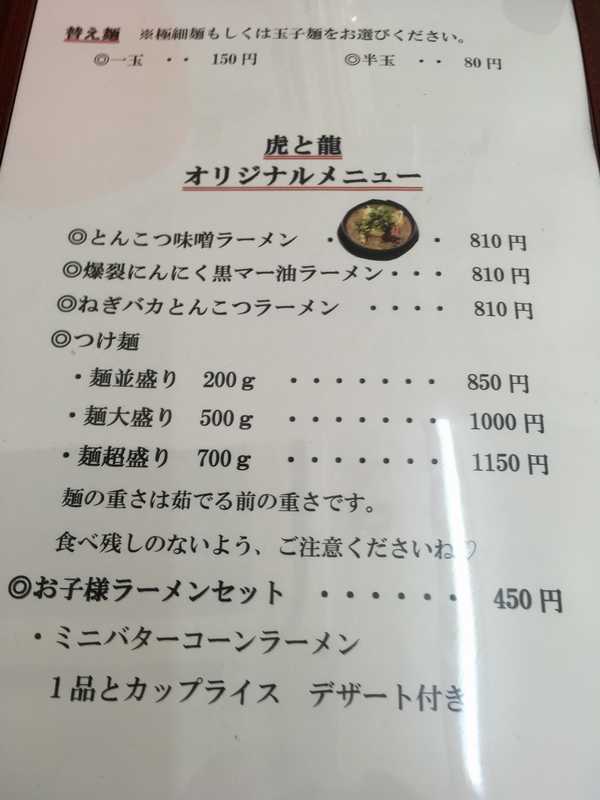 替え麺 ※極細麺もしくは玉子麺をお選びください。
◎一玉 ・・ 150円 ◎半玉 ・・ 80円
虎と龍
オリジナルメニュー
◎とんこつ味噌ラーメン ・ ・ 810円
◎爆裂にんにく黒マー油ラーメン・・・ 810円
◎ねぎバカとんこつラーメン ・・・・ 810円
◎つけ麺
・麺並盛り 200g ・・・・・・・ 850円
・麺大盛り 500g ・・・・・・・ 1000円
・麺超盛り 700g ・・・・・・・ 1150円
麺の重さは茹でる前の重さです。
食べ残しのないよう、ご注意くださいね♡
◎お子様ラーメンセット ・・・・・・ 450円
・ミニバターコーンラーメン
1品とカップライス デザート付き